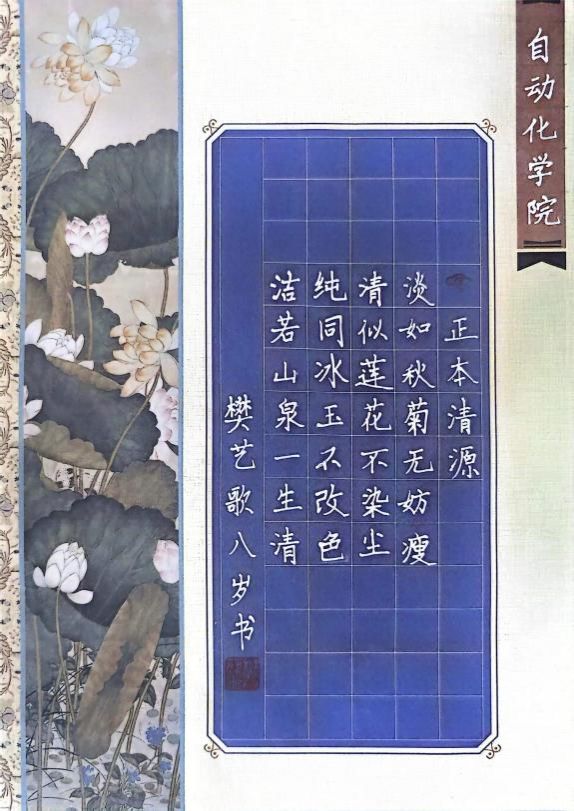 自动化学院
正本清源
淡如秋菊无妨瘦
清似莲花不染尘
纯同冰玉不改色
洁若山泉一生清
樊艺歌八岁书